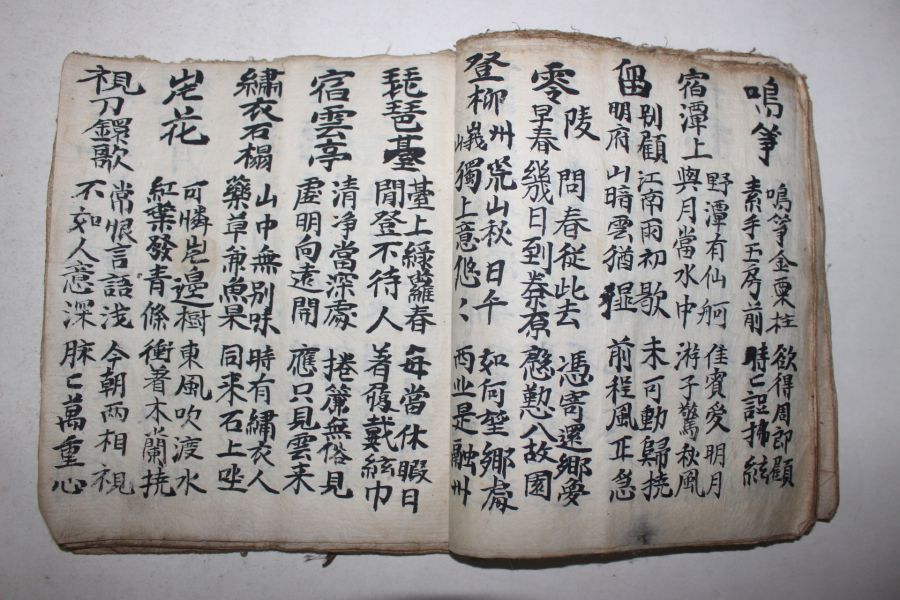 鳴箏
鳴箏金粟柱 欲得周郎顧
素手玉房前 時〻誤拂絃
宿潭上
野潭有仙舸 佳賓愛明月
與月當水中 游子驚秋風
留別顧明府
江南雨初歇 未可動歸橈
山暗雲猶濕 前程風正急
零陵早春
問春從此去 憑寄還鄉夢
幾日到秦原 慇懃入故園
登柳州峩山
荒山秋日午 如何望鄉處
獨上意悠〻 西北是融州
琵琶臺
臺上綠蘿春 每當休暇日
閒登不待人 著履戴絃巾
宿雲亭
清净當深處 捲簾無俗見
虛明向遠開 應只見雲来
繡衣石榻
山中無別味 時有繡衣人
藥草帶魚果 同来石上坐
岸花
可憐岸邊樹 東風吹渡水
紅葉發青條 衝著木蘭橈
視刀鐶歌
常恨言語淺 今朝兩相視
不如人意深 脉〻萬重心